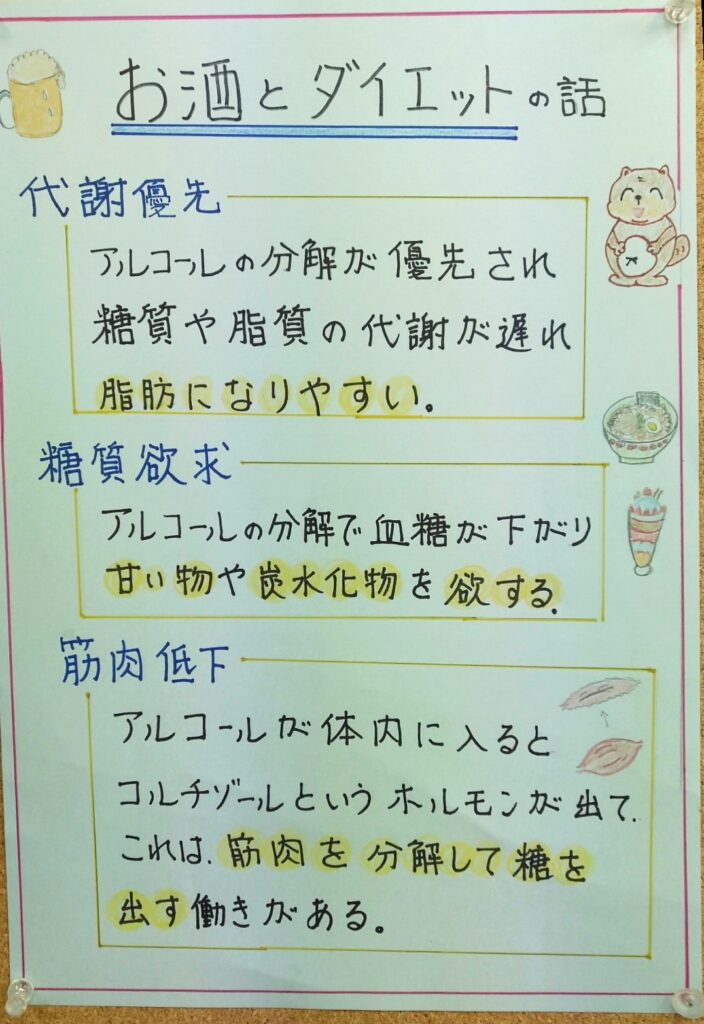 お酒とダイエットの話
代謝優先
アルコールの分解が優先され
糖質や脂質の代謝が遅れ
脂肪になりやすい。
糖質欲求
アルコールの分解で血糖が下がり
甘い物や炭水化物を欲する.
筋肉低下
アルコールが体内に入ると
コルチゾールというホルモンが出て.
これは.筋肉を分解して糖を
出す働きがある。